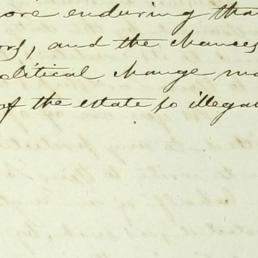 ore enduring than
ors, and the chances
olitical change ma
of the estate so illega